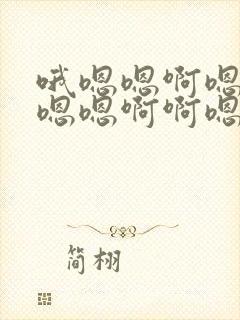 哦嗯嗯啊嗯
嗯嗯啊啊嗯
简栩